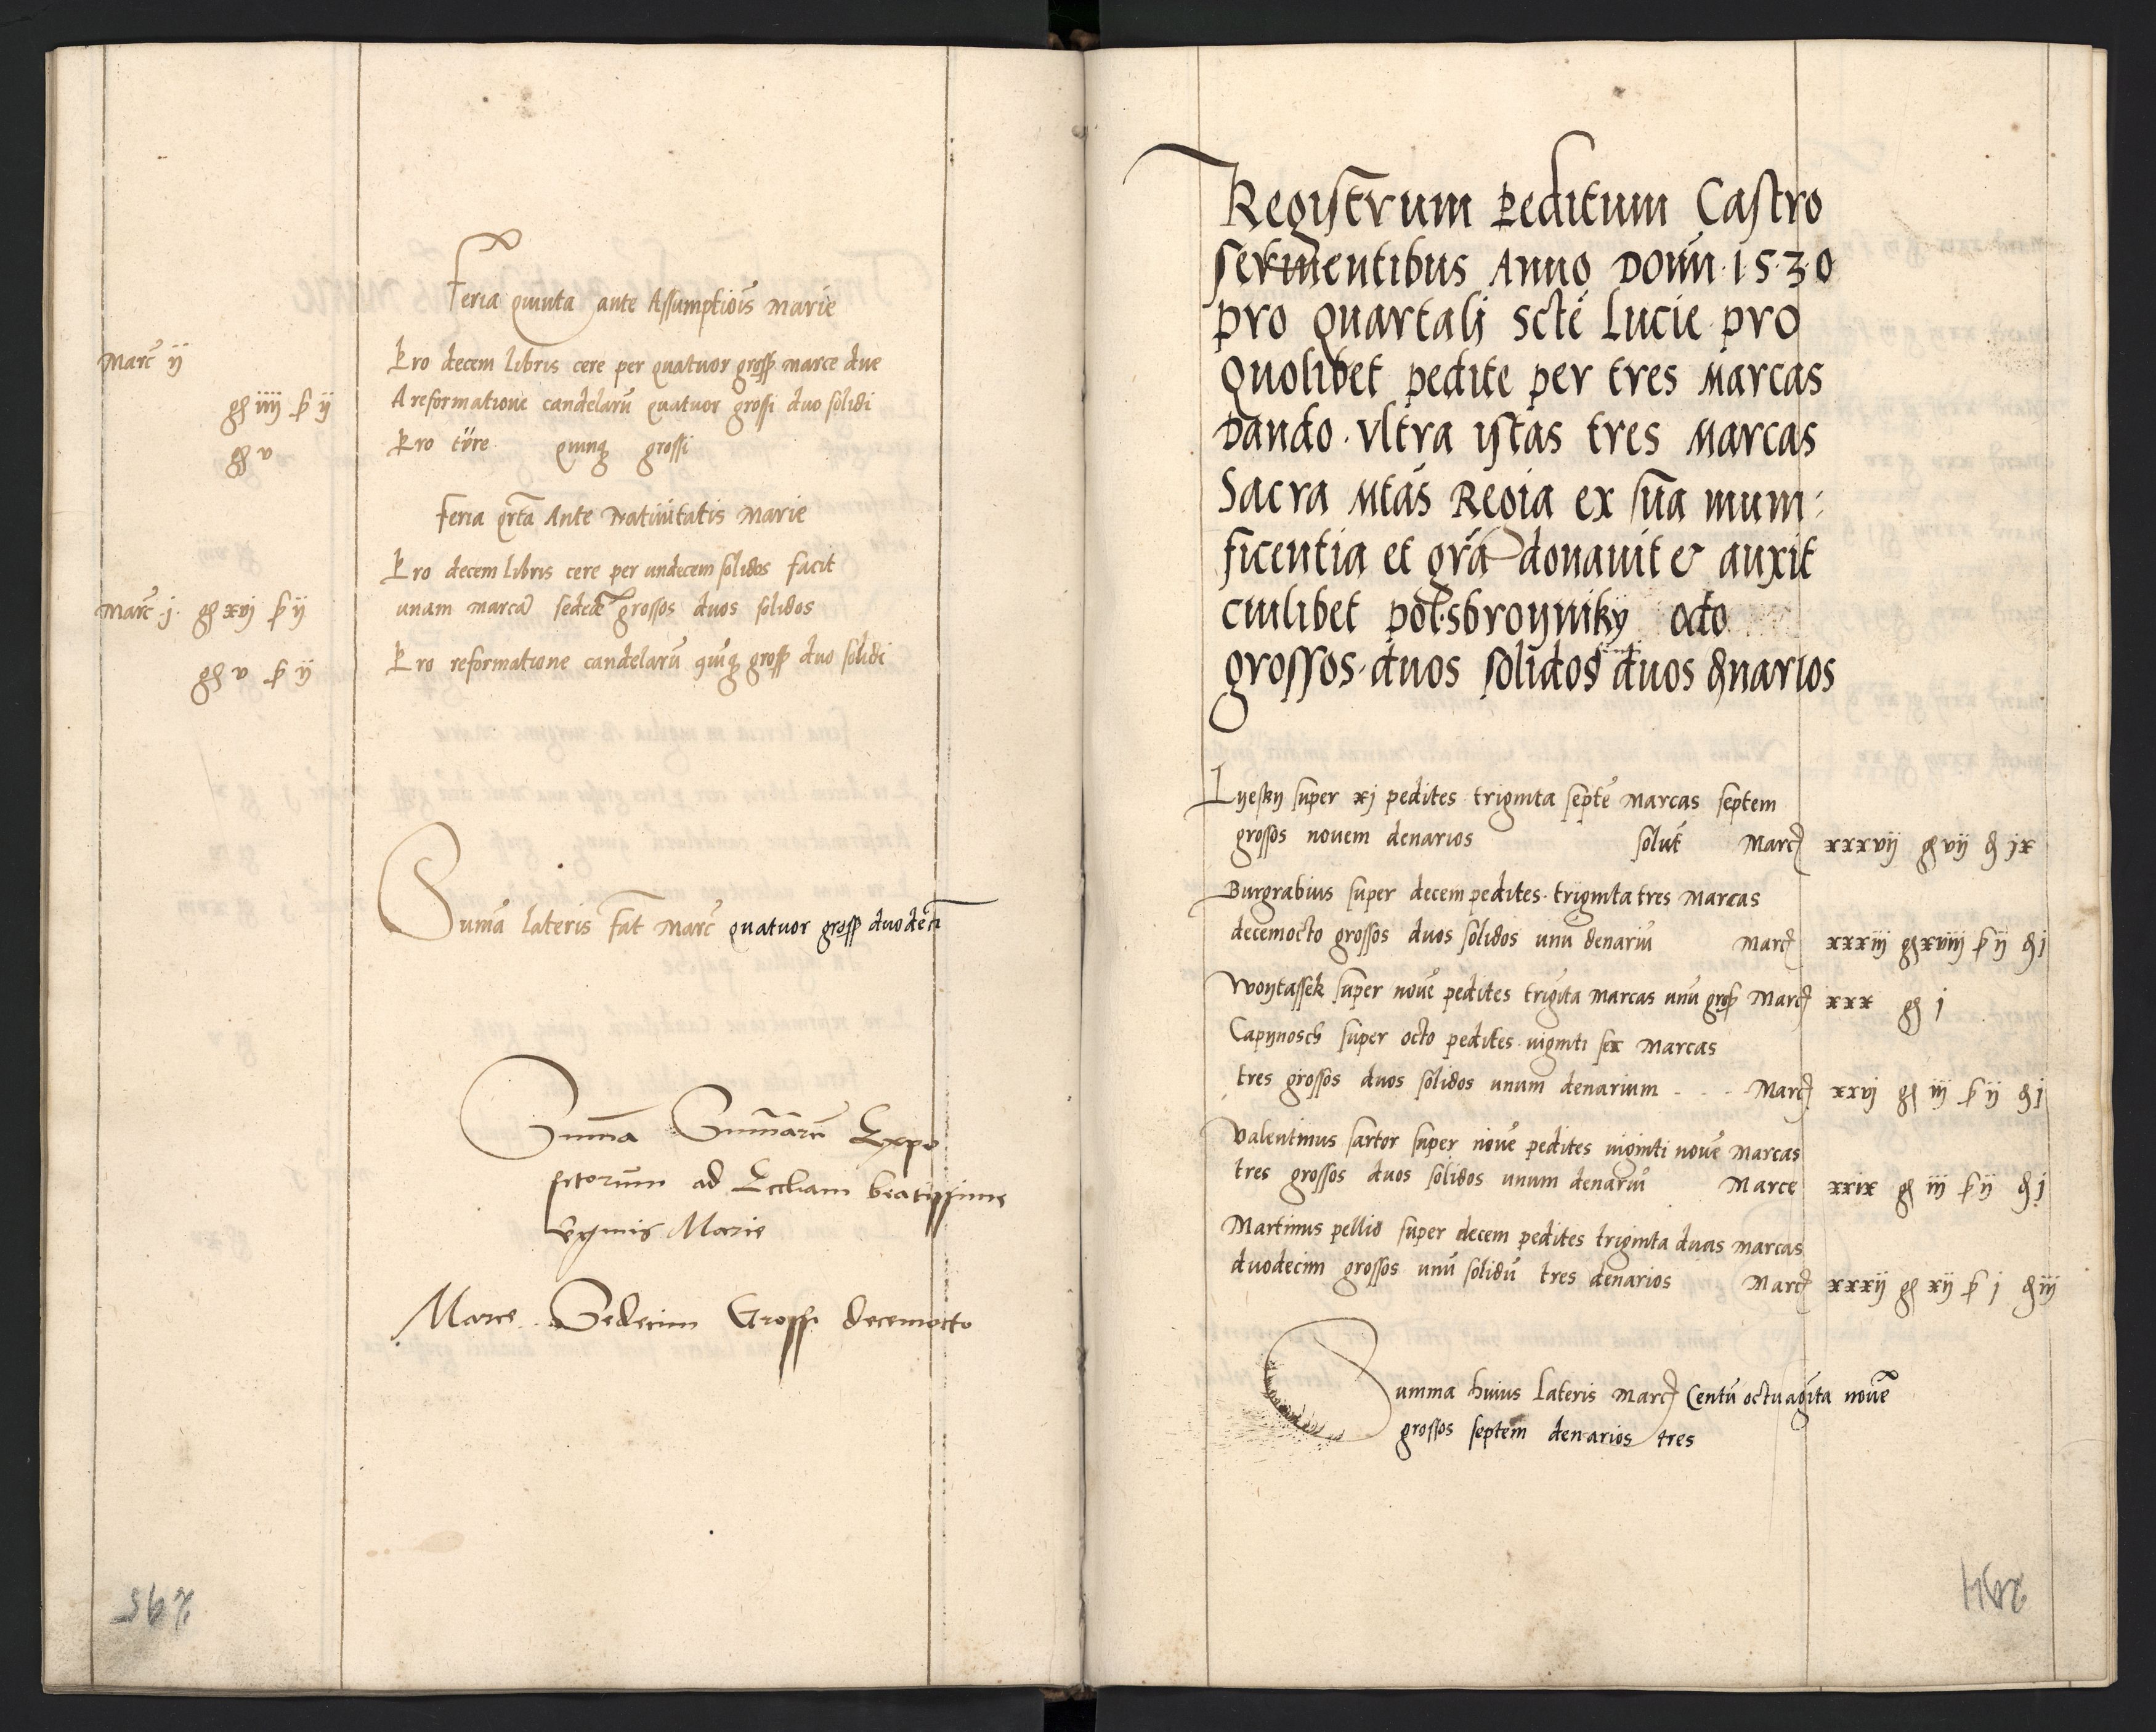 Feria quinta ante Assumptiois Marie
Marc̃ ij Pro decem libris cere per quatuor gross marce due
gr iiij s ij A reformatione candelarũ quatuor grossi duo solidi
gr v Pro türe quinq grossi
Feria qrta Ante Natiuitatis Marie
Pro decem libris cere per undecem solidos facit
Marc̃ j gr xvj s ij unam marcã sedeč grossos duos solidos
gr v s ij Pro reformatione candelarũ quiq gross duo solidi
Sumã lateris fat Marc̃ quatuor gross duodeci
Summa Summarũ Expo
sitorum ad Eccliam beatissime
virginis Marie
Marce Sedecim Grossi decemocto
295
Registrum peditum Castro
seruientibus Anno Domĩ 1530
pro quartalj Scte Lucie pro
quolibet pedite per tres Marcas
Dando vltra istas tres Marcas
Sacra Mtas Regia ex sua muni
ficentia et gra donauit & auxit
cuilibet potsbroyniky octo
grossos duos solidos duos đnarios
Lyesky super xj pedites triginta septẽ Marcas septem
grossos nouem denarios solut Marc xxxvij gr vij đ jx
Burgrabius super decem pedites triginta tres Marcas
decemocto grossos duos solidos unũ denariũ Marc xxxiij gr xviij s ij đ j
Woytassek super nouẽ pedites trigita Marcas unũ gross Marc xxx gr j
Capynosch super octo pedites uiginti sex Marcas
tres grossos duos solidos unum denarium Marc xxvj gr iij s ij đ j
Valentinus sartor super nouẽ pedites uiginti nouẽ Marcas
tres grossos duos solidos unum denariũ Marce xxix gr iij s ij đ j
Martinus pellio super decem pedites triginta duas Marcas
duodecim grossos unũ solidũ tres denarios Marc xxxij gr xij s j đ iij
Summa huius lateris Marc Centũ octuagĩta nouẽ
grossos septem denarios tres